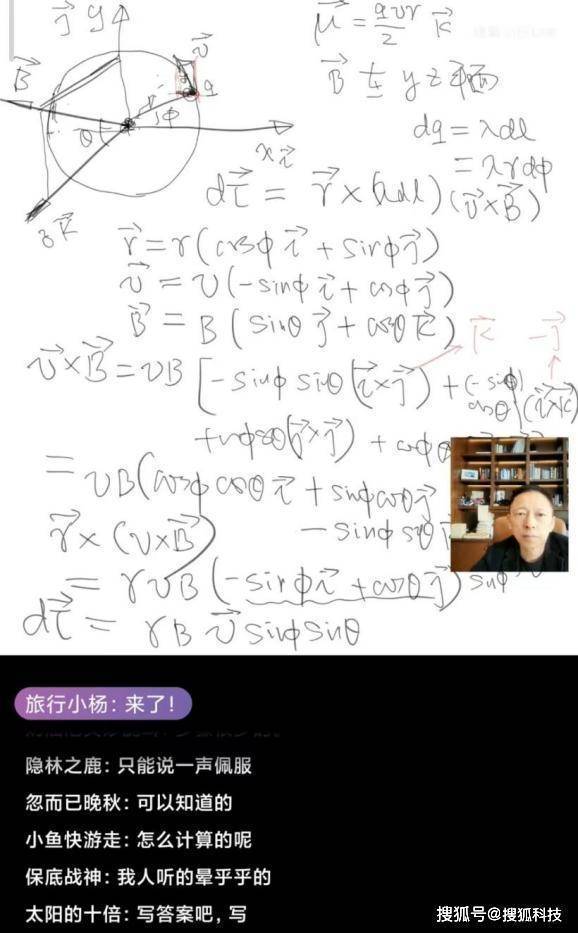 j y
μ = qvr/2 k
B 在 yz 平面
dq = λdl
= λrdφ
B v q r φ θ
x i
z k
dτ = r × (λdl) (v×B)
r = r(cosφ i + sinφ j)
v = v(-sinφ i + cosφ j)
B = B (sinθ j + cosθ k)
k -j
v×B = vB [-sinφ sinθ (i×j) + (-sinφ) cosθ (i×k)
= vB(cosφ cosθ i + sinφ cosθ j
r × (v×B) - sinφ sinθ
= rvB (-sinφ i + cosθ j)
dτ = rB v sinφ sinθ
旅行小杨：来了！
隐林之鹿：只能说一声佩服
忽而已晚秋：可以知道的
小鱼快游走：怎么计算的呢
保底战神：我人听的晕乎乎的
太阳的十倍：写答案吧，写
搜狐号@搜狐科技